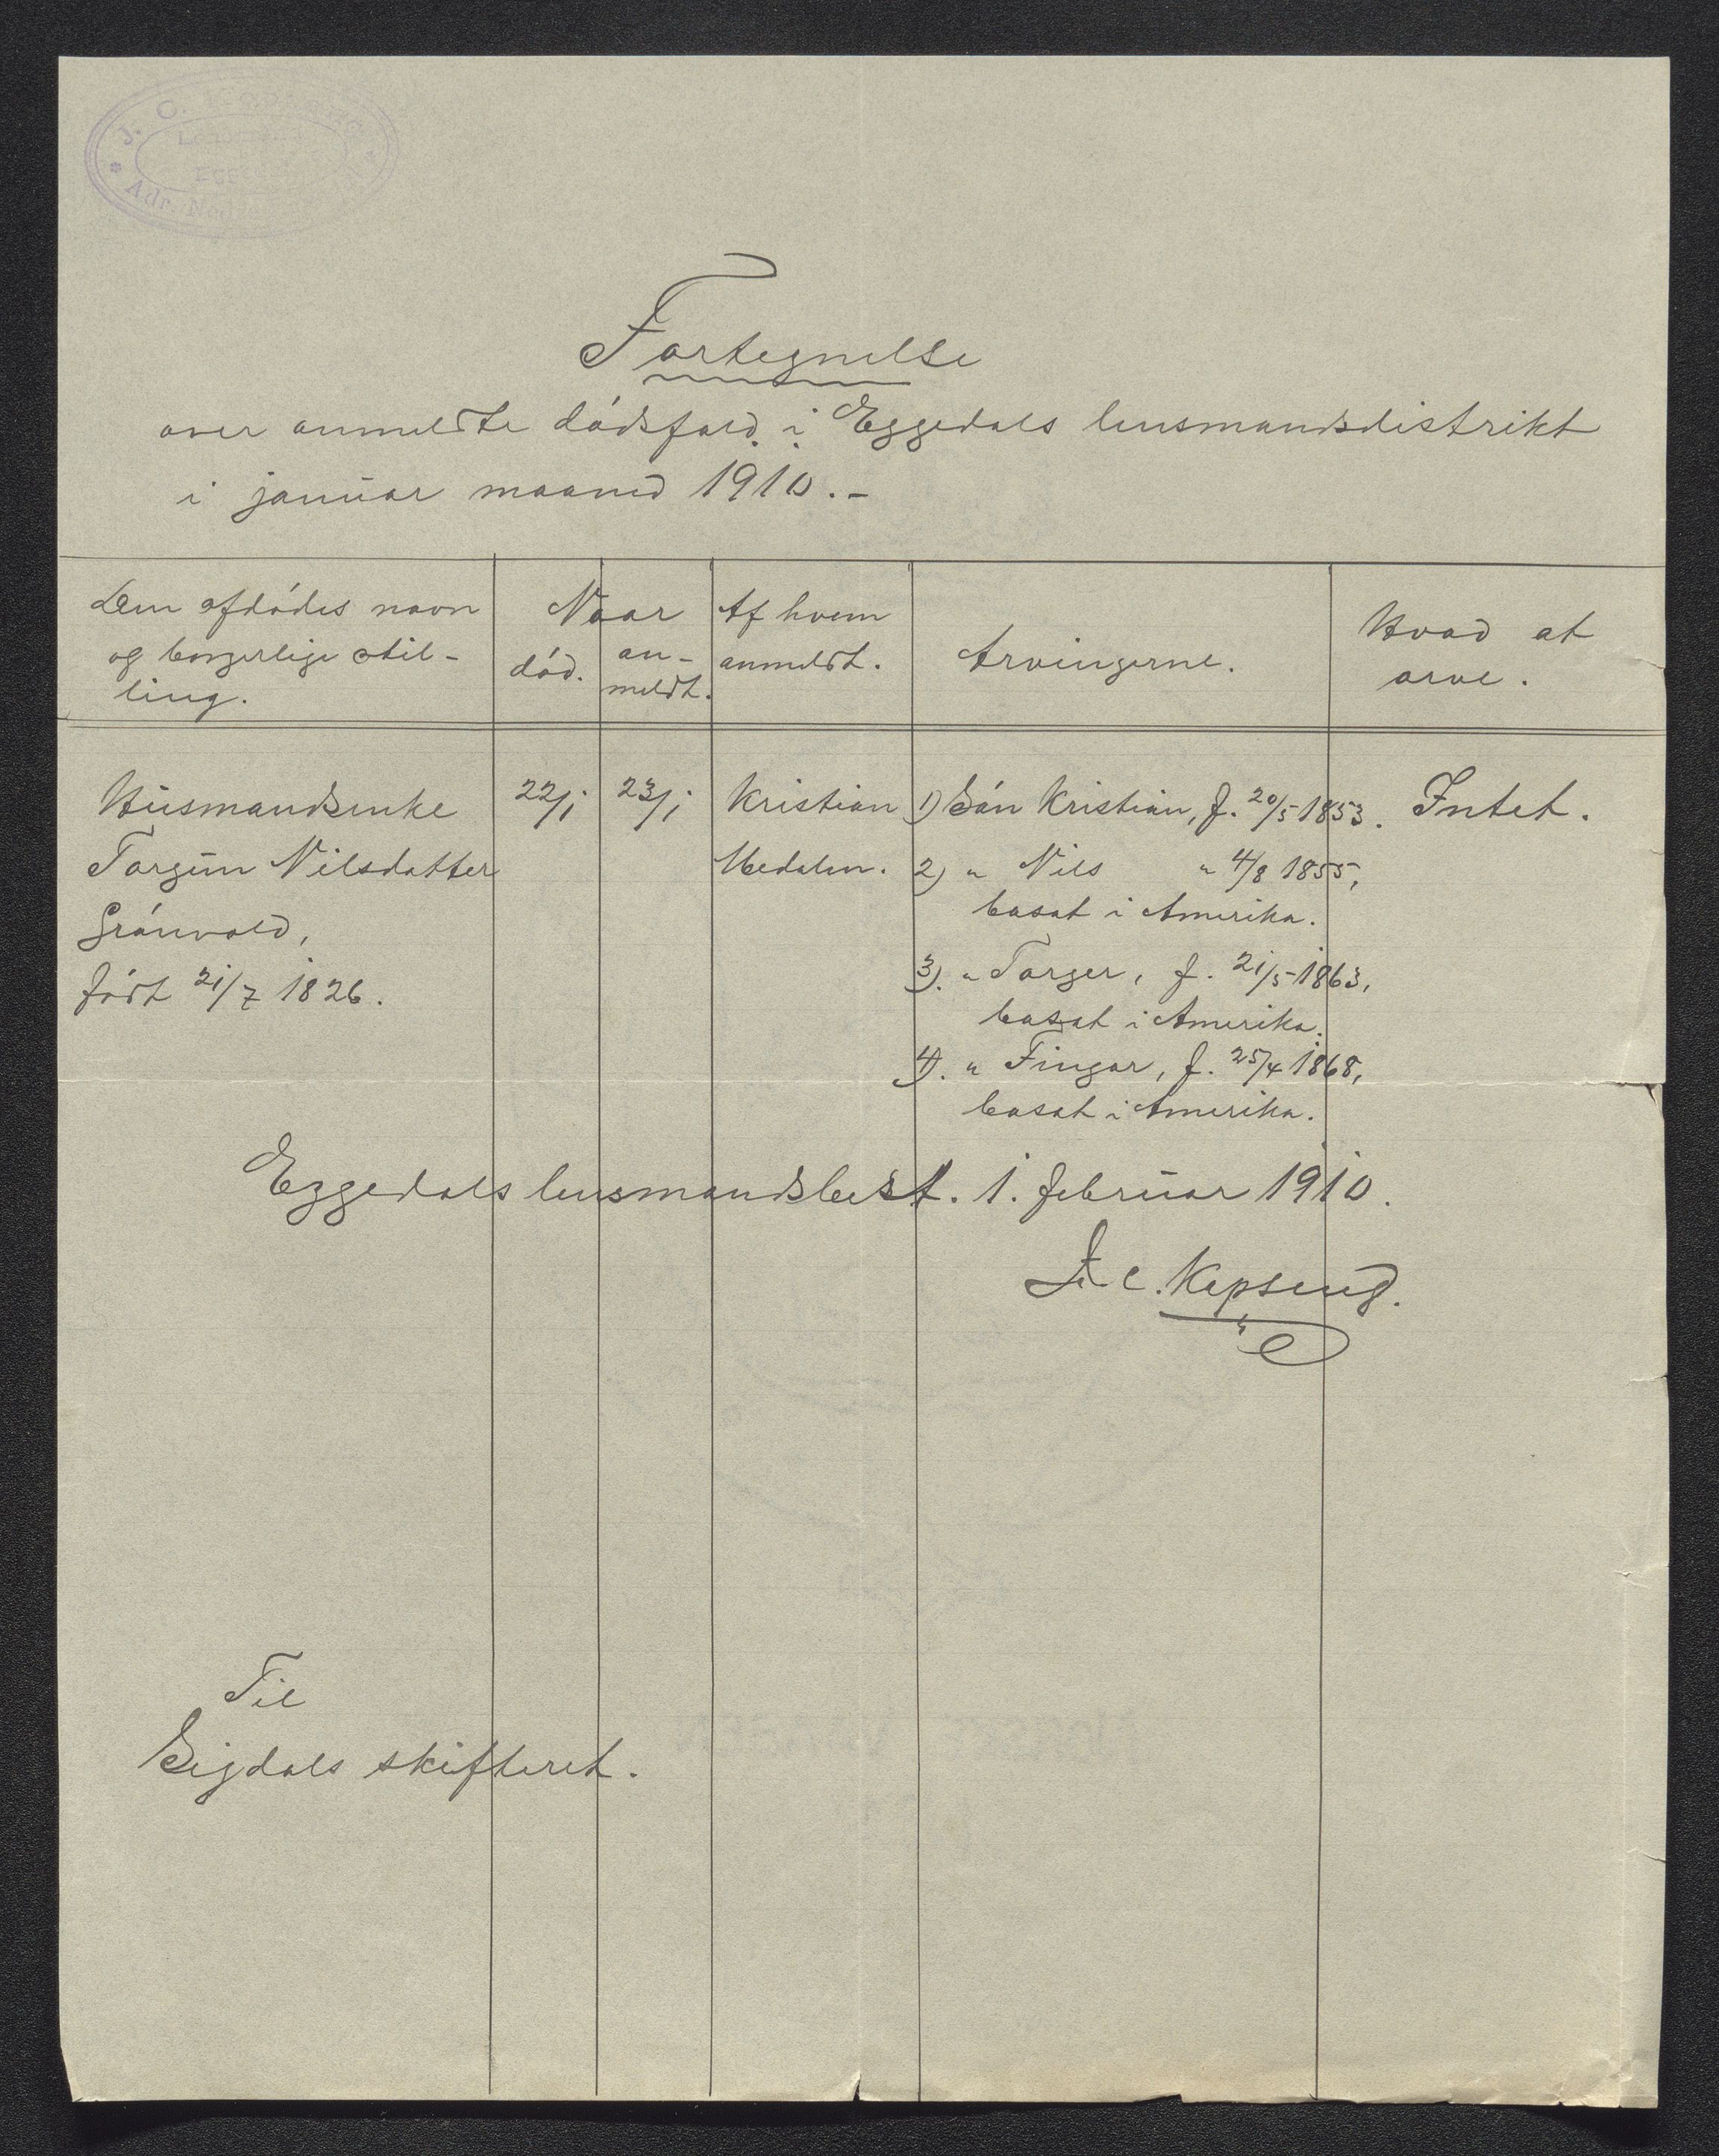 J. C.
Adr. Nedre
Fortegnelse
over anmeldte dódsfald i Eggedals lensmandsdistrikt
i januar maaned 1910.-
Den afdódes navn
og borgerlige stil-
ling.
Naar
dód.
an-
meldt.
Af hvem
anmeldt.
Arvingerne.
Hvad at
arve.
Husmandsenke
Torgun Nilsdatter
Grónvold,
fódt 21/7 1826.
22/1
23/1
Kristian
Medalen.
1) Són Kristian, f. 20/5 1853.
2) " Nils " 4/8 1855,
bosat i Amerika.
3). " Torger, f. 21/5 1863,
bosat i Amerika.
4). " Fingar, f. 25/4 1868,
bosat i Amerika.
Intet.
Eggedals lensmandsbest. 1. februar 1910.
J. C. Kopseng.
Til
Sigdals skifteret.